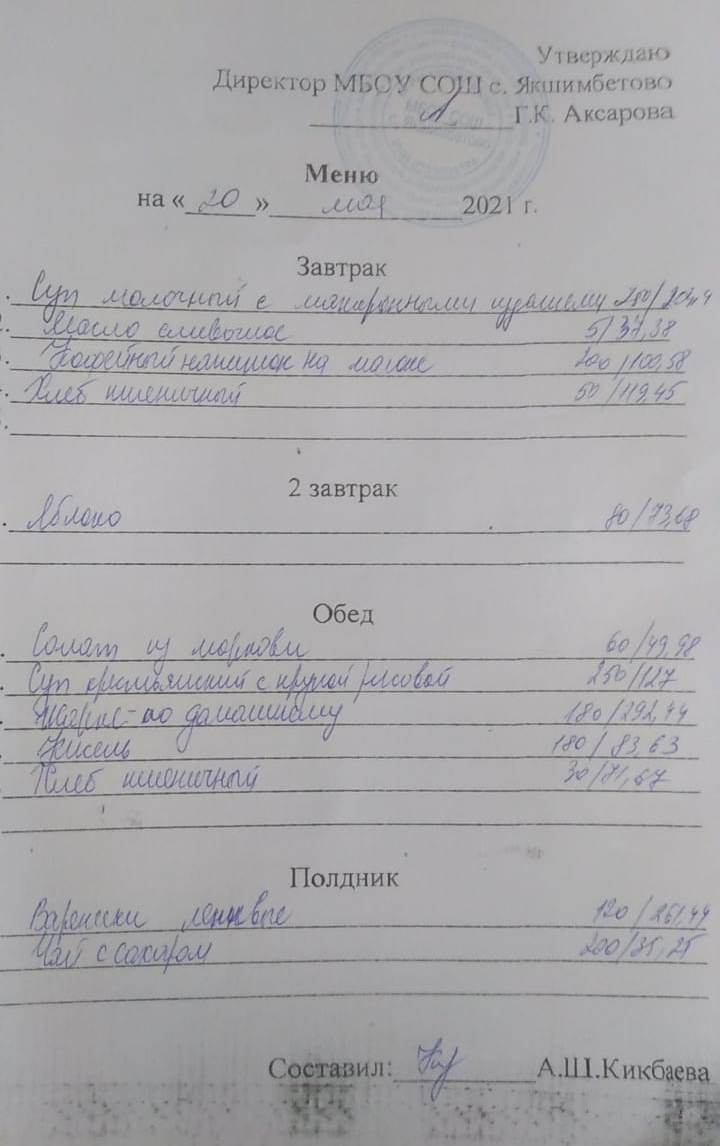 Утверждаю
Директор МБОУ СОШ с. Якшимбетово
Г.К. Аксарова
Меню
на « 20 » мая 2021 г.
Завтрак
Суп молочный с макаронными 250/203,4
Масло сливочное 5/37,38
Кофейный напиток на молоке 200/100,58
Хлеб пшеничный 50/119,45
2 завтрак
Яблоко 80/73,68
Обед
Солат из моркови 60/49,98
Суп крестьянский с крупой рисовой 250/127
Жаркое по домашнему 180/292,44
Кисель 180/83,63
Хлеб пшеничный 30/71,67
Полдник
Вареники ленивые 120/261,44
Чай с сахаром 200/35,25
Составил: А.Ш.Кикбаева